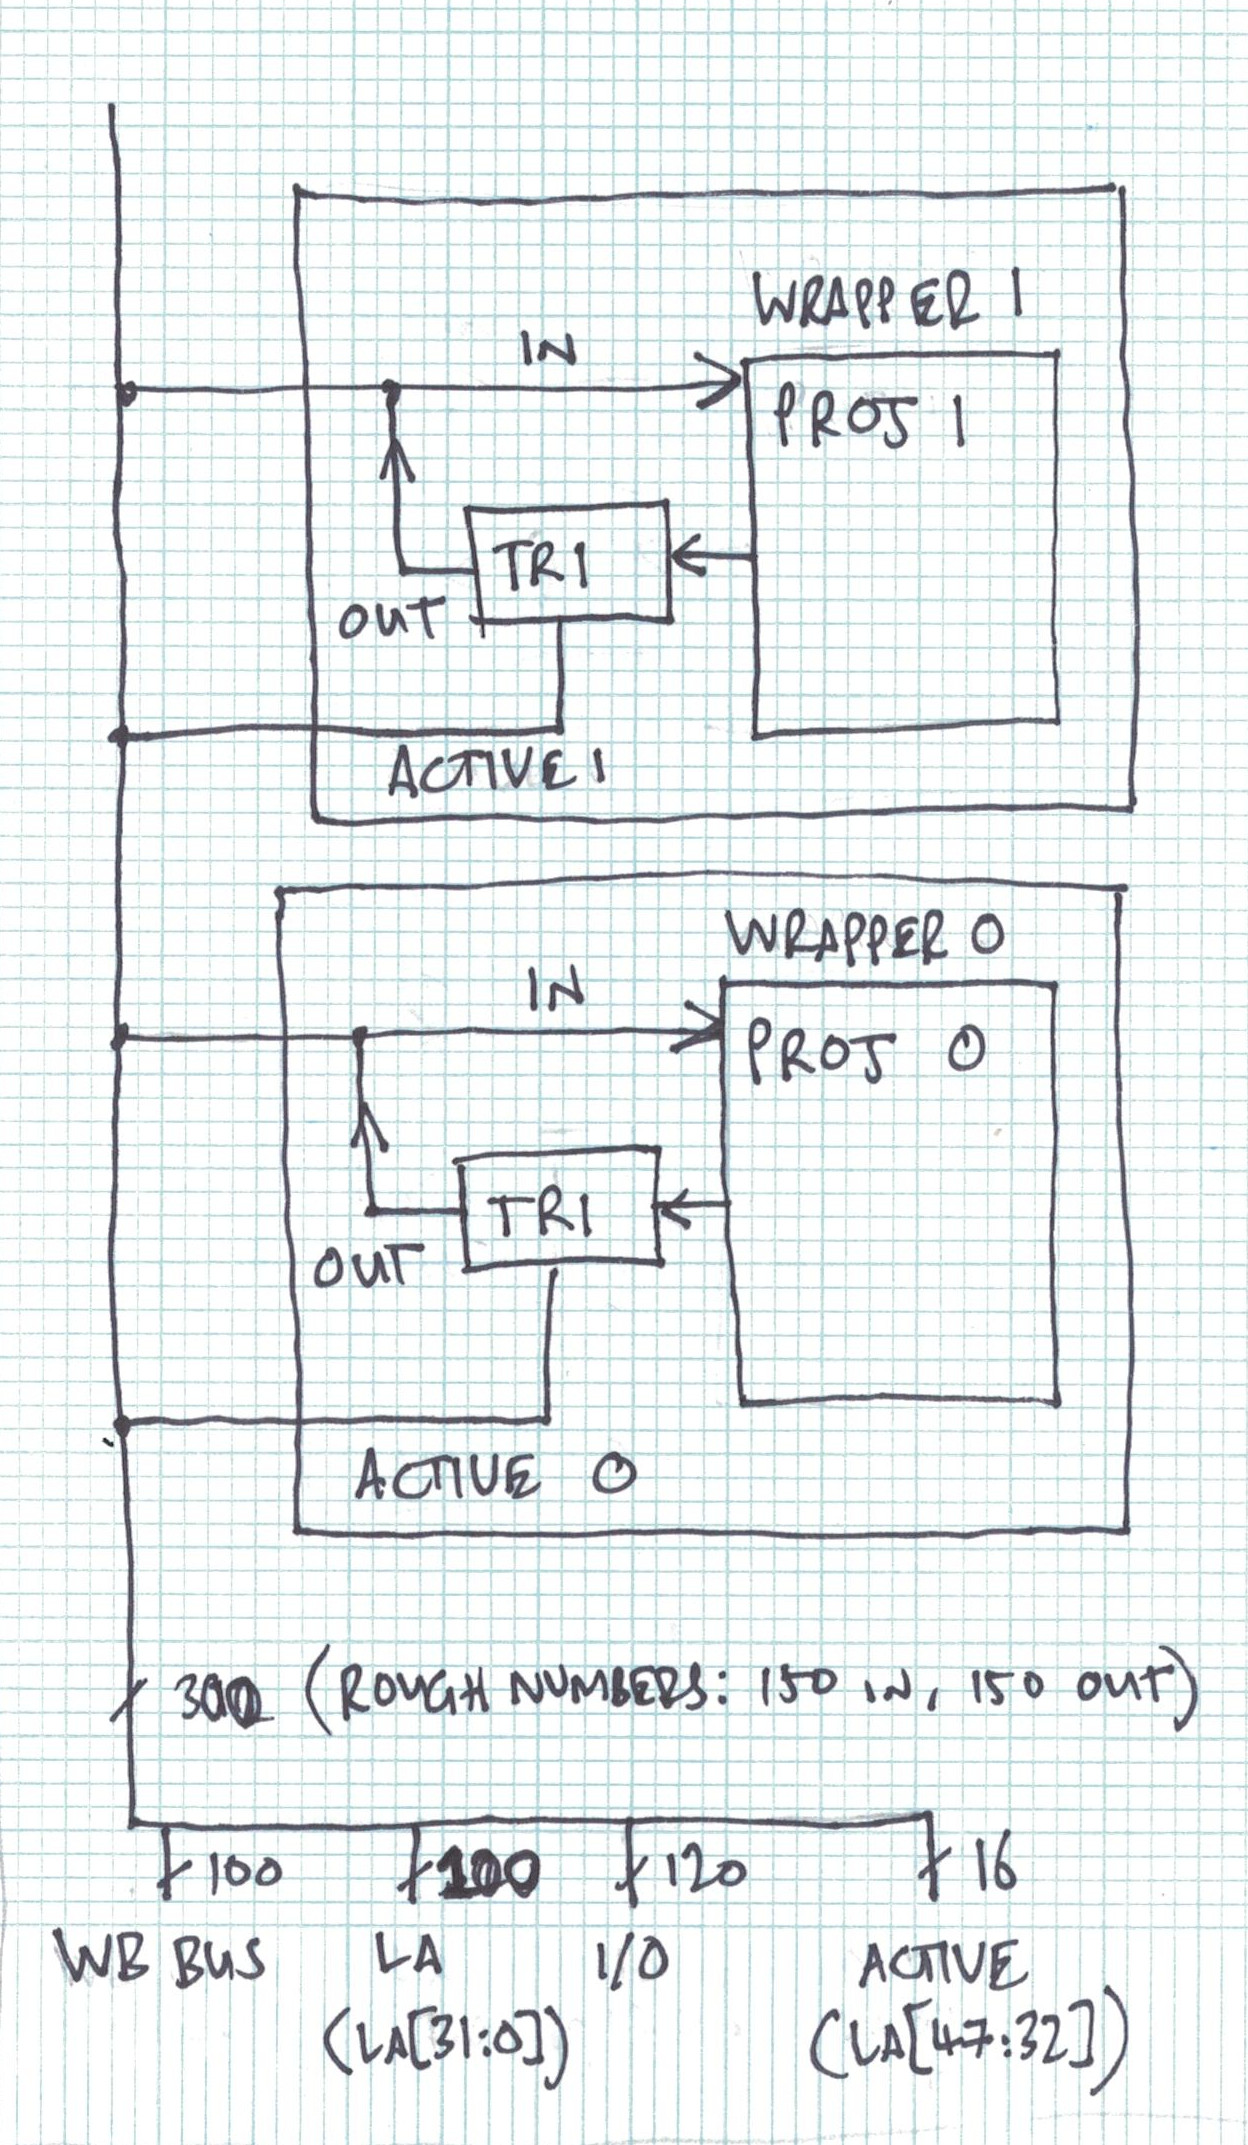 WRAPPER 1
IN
PROJ 1
TRI
OUT
ACTIVE 1
WRAPPER 0
IN
PROJ 0
TRI
OUT
ACTIVE 0
300 (ROUGH NUMBERS: 150 IN, 150 OUT)
100 100 120 16
WB BUS LA I/O ACTIVE
(LA[31:0]) (LA[47:32])